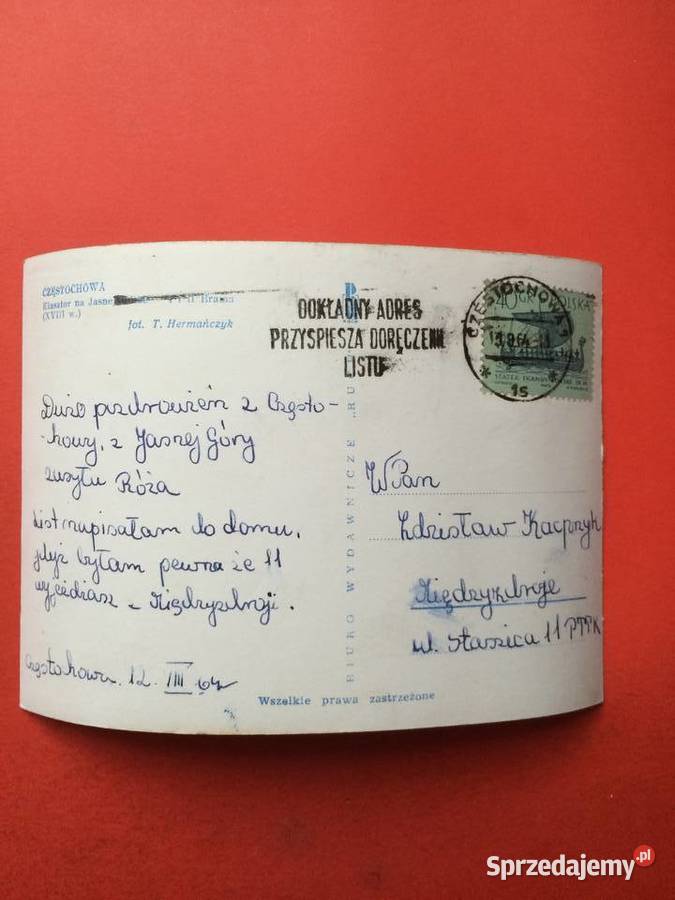 CZĘSTOCHOWA
Klasztor na Jasnej II Brama
(XVIII w.)
fot. T. Hermańczyk
DOKŁADNY ADRES
PRZYSPIESZA DORĘCZENIE
LISTU
CZĘSTOCHOWA
1s
40 GR POLSKA
Dużo pozdrowień z Często-
-howy, z Jasnej Góry
zasyła Róża
List napisałam do domu,
gdyż byłam pewna że 11
wyjeżdżasz z
Częstochowa, 12. VIII 64
BIURO WYDAWNICZE „RUCH"
WPan
Zdzisław Kacprzyk
Międzyzdroje
ul. Staszica 11 PTTK
Wszelkie prawa zastrzeżone
Sprzedajemy.pl